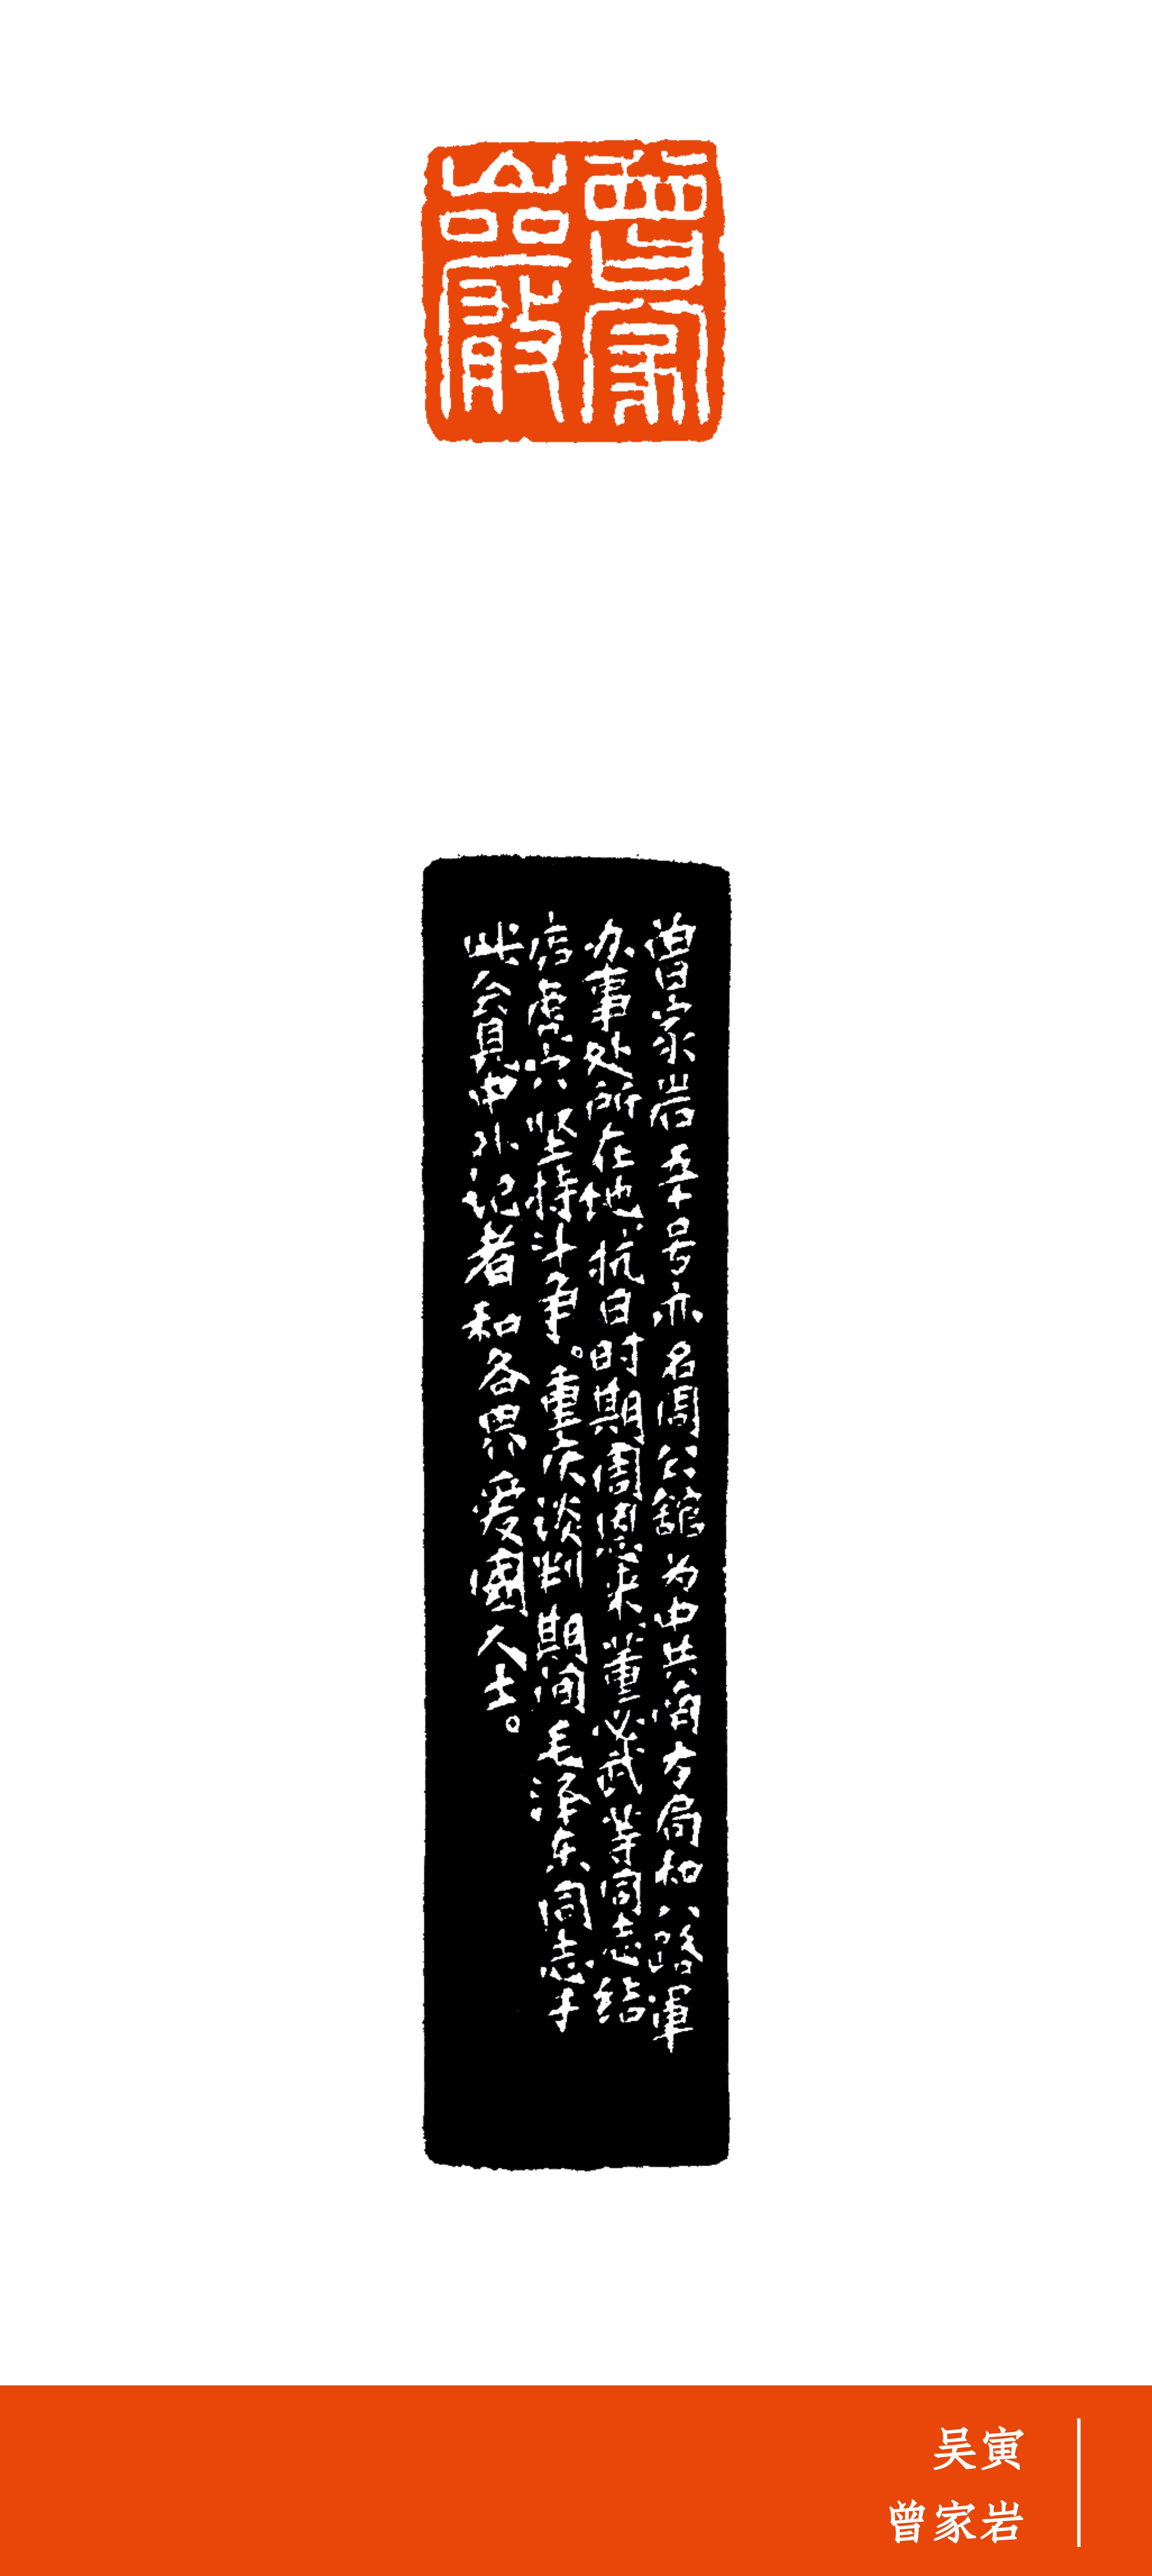 曾家
巖
曾家岩五十号亦名周公舘为中共南方局和八路軍
办事处所在地抗日时期周恩来董必武等同志结
虎穴坚持斗争。重庆谈判期间毛泽东同志于
此会见中外记者和各界爱國人士。
吴寅
曾家岩